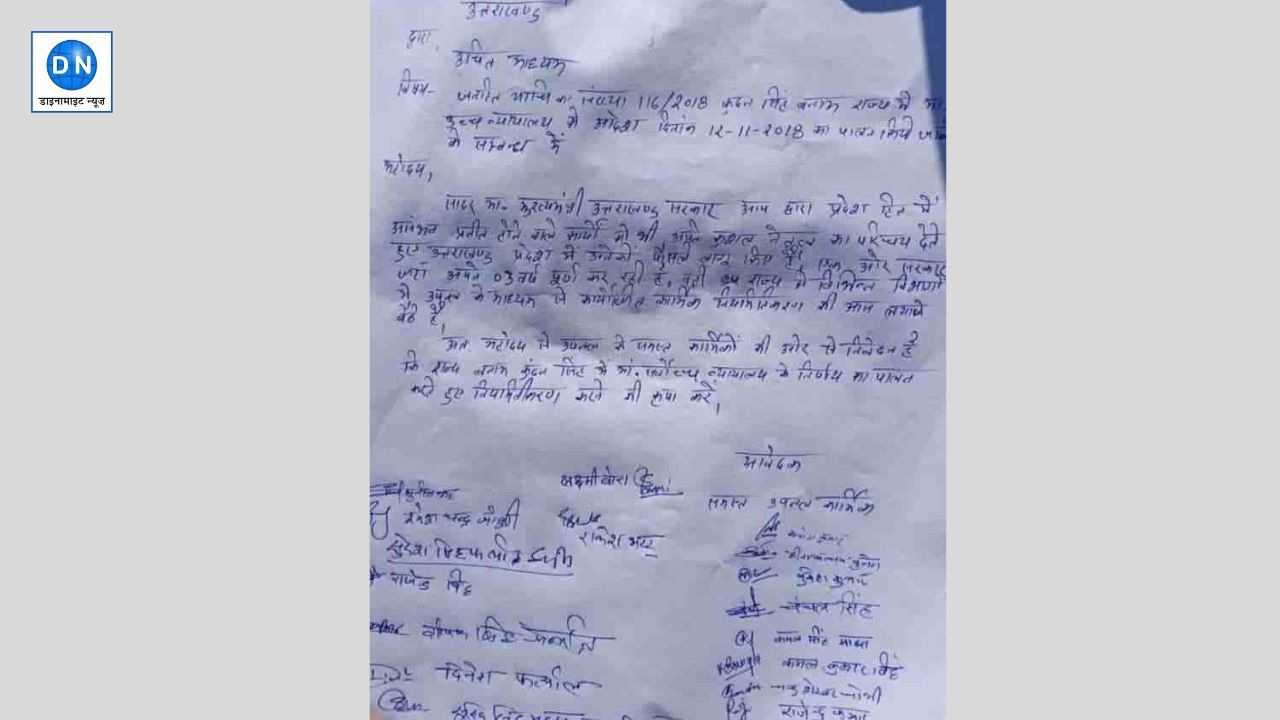 DN
डाइनामाइट न्यूज़
उत्तराखण्ड
द्वारा,
उचित माध्यम
विषय- जनहित याचिका संख्या 116/2018 कुंदन सिंह बनाम राज्य में मा.
उच्च न्यायालय के आदेश दिनांक 12-11-2018 का पालन किये जाने
के सम्बन्ध में
महोदय,
सादर मा. मुख्यमंत्री उत्तराखण्ड सरकार आप द्वारा प्रदेश हित में
असंभव प्रतीत होने वाले कार्यों को भी अपने कुशल नेतृत्व का परिचय देते
हुए उत्तराखण्ड प्रदेश में अनेकों फैसले लागू किए हैं, एक ओर सरकार
जहां अपने 03 वर्ष पूर्ण कर रही है, वहीं राज्य के विभिन्न विभागों
में उपनल के माध्यम से कार्मिक नियमितिकरण की आस लगाये
बैठे हैं।
अतः महोदय से उपनल के समस्त कार्मिकों की ओर से निवेदन है
कि राज्य बनाम कुंदन सिंह में मां. सर्वोच्च न्यायालय के निर्णय का पालन
करते हुए नियमितीकरण करने की कृपा करें।
आवेदक
समस्त उपनल कार्मिक
लक्ष्मी बोरा
रमेश चन्द्र जोशी
राकेश भट्ट
राजेन्द्र सिंह
दिनेश फर्त्याल
चंचल सिंह
कमल सिंह
कमल कुमार सिंह
राजेन्द्र कुमार